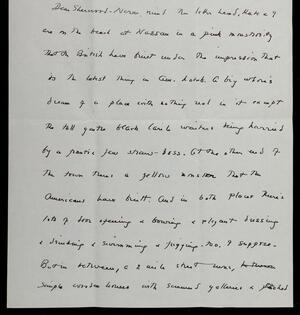 Dear Sherwood - Never mind the letter head, Kate & I
are on the beach at Nassau in a pink monstrosity
that the British have built under the impression that
its the latest thing in Am. hotels. A big whore's
dream of a place with nothing real in it except
the tall gentle black Carib waiters being harried
by a frantic jew straw-boss. At the other end of
the town theres a yellow monster that the
Americans have built. And in both places there's
lots of door opening & bowing & elegant dressing
& drinking & swimming & jugging-too, I suppose.
But in between, a 2 mile street runs, between
simple wooden houses with screened galleries &